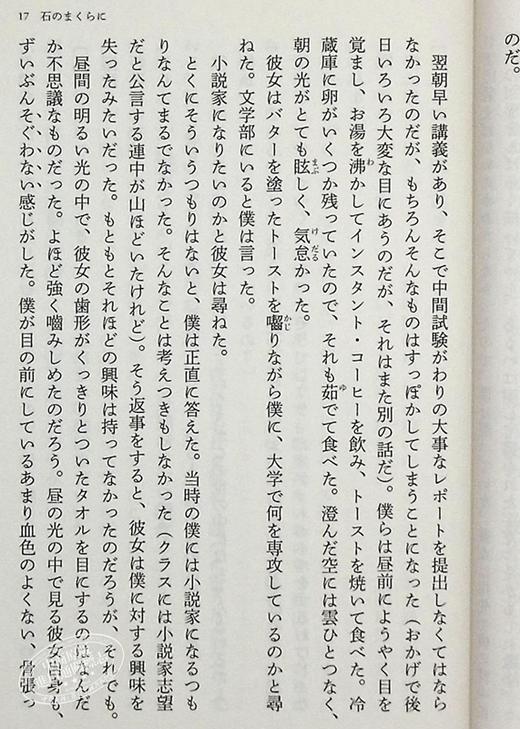 17 石のまくらに
のだ。
翌朝早い講義があり、そこで中間試験がわりの大事なレポートを提出しなくてはなら
なかったのだが、もちろんそんなものはすっぽかしてしまうことになった（おかげで後
日いろいろ大変な目にあうのだが、それはまた別の話だ）。僕らは昼前にようやく目を
覚まし、お湯を沸かしてインスタント・コーヒーを飲み、トーストを焼いて食べた。冷
蔵庫に卵がいくつか残っていたので、それも茹でて食べた。澄んだ空には雲ひとつなく、
朝の光がとても眩しく、気怠かった。
彼女はバターを塗ったトーストを囓りながら僕に、大学で何を専攻しているのかと尋
ねた。文学部にいると僕は言った。
小説家になりたいのかと彼女は尋ねた。
とくにそういうつもりはないと、僕は正直に答えた。当時の僕には小説家になるつも
りなんてまるでなかった。そんなことは考えつきもしなかった（クラスには小説家志望
だと公言する連中が山ほどいたけれど）。そう返事をすると、彼女は僕に対する興味を
失ったみたいだった。もともとそれほどの興味は持ってなかったのだろうが、それでも。
昼間の明るい光の中で、彼女の歯形がくっきりとついたタオルを目にするのはなんだ
か不思議なものだった。よほど強く嚙みしめたのだろう。昼の光の中で見る彼女自身も、
ずいぶんそぐわない感じがした。僕が目の前にしているあまり血色のよくない、骨張っ